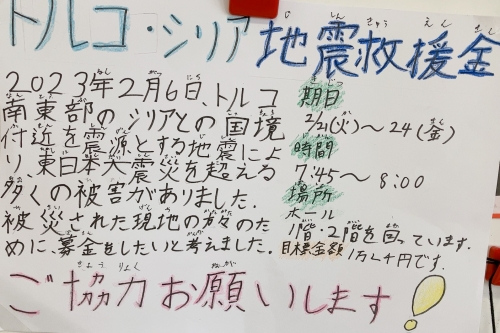 トルコ・シリア地震救援金
2023年2月6日、トルコ
南東部のシリアとの国境
付近を震源とする地震によ
り、東日本大震災を超える
多くの被害がありました.
被災された現地の方々のた
めに、募金をしたいと考えました.
期日
2/21(火)～24(金)
時間
7:45～8:00
場所
ホール
1階・2階を回っています.
目標金額 1万
円です.
ご協力お願いします!